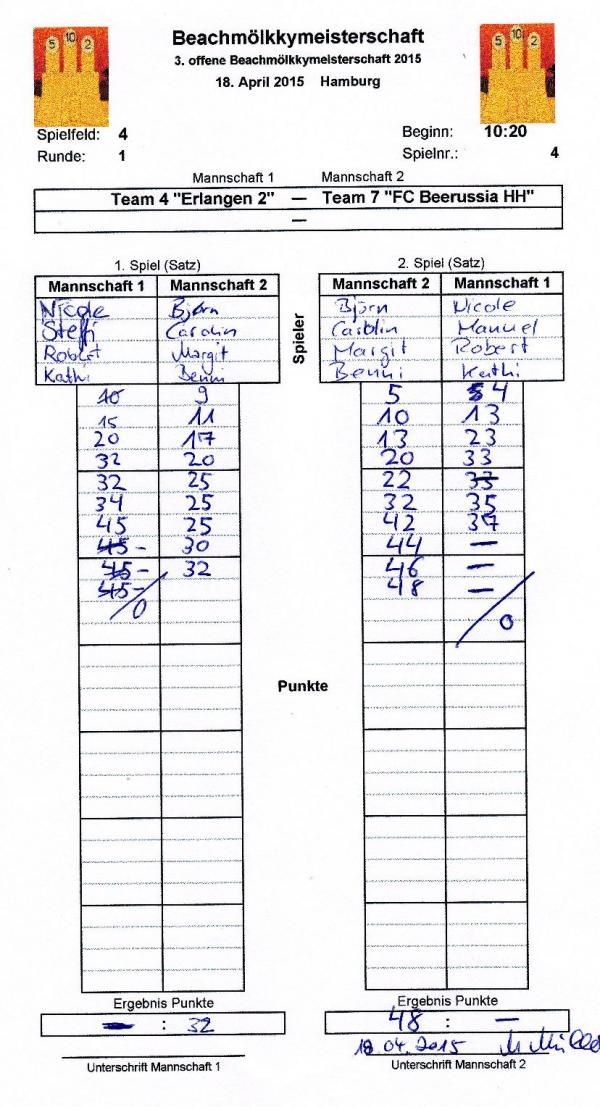 5 10 2
Beachmölkkymeisterschaft
5 10 2
3. offene Beachmölkkymeisterschaft 2015
18. April 2015 Hamburg
Spielfeld: 4
Beginn: 10:20
Runde: 1
Spielnr.: 4
Mannschaft 1 Mannschaft 2
Team 4 "Erlangen 2" — Team 7 "FC Beerussia HH"
—
1. Spiel (Satz) 2. Spiel (Satz)
Mannschaft 1 Mannschaft 2 Mannschaft 2 Mannschaft 1
Nicole Björn Björn Nicole
Steffi Carolin Carolin Manuel
Robert Margit Margit Robert
Kathi Benni Benni Kathi
Spieler
10 9 5 4
15 11 10 13
20 17 13 23
32 20 20 33
32 25 22 33
34 25 32 35
45 25 42 37
45 - 30 44 —
45 - 32 46 —
45 - 48 —
0 0
Punkte
Ergebnis Punkte Ergebnis Punkte
— : 32 48 : —
18.04.2015
Unterschrift Mannschaft 1 Unterschrift Mannschaft 2